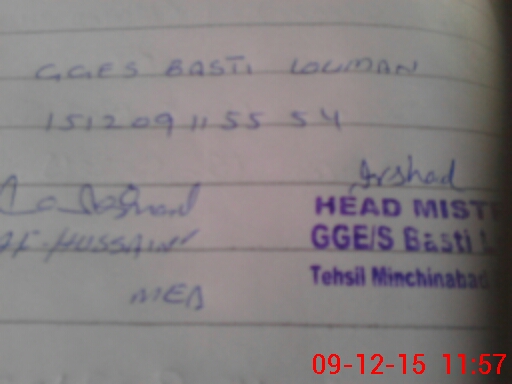 GGES BASTI LOUMAN
151209115554
Arshad
HEAD MIST
HUSSAIN GGE/S Basti L
Tehsil Minchinabad
MEA
09-12-15 11:57